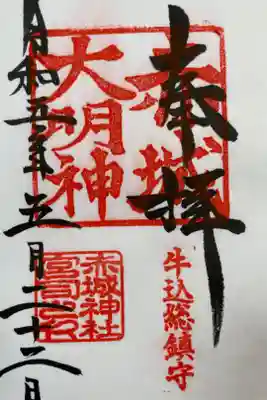 奉拝
赤城
大明神
牛込総鎮守
赤城神社
宮司之印
令和五年五月二十六日